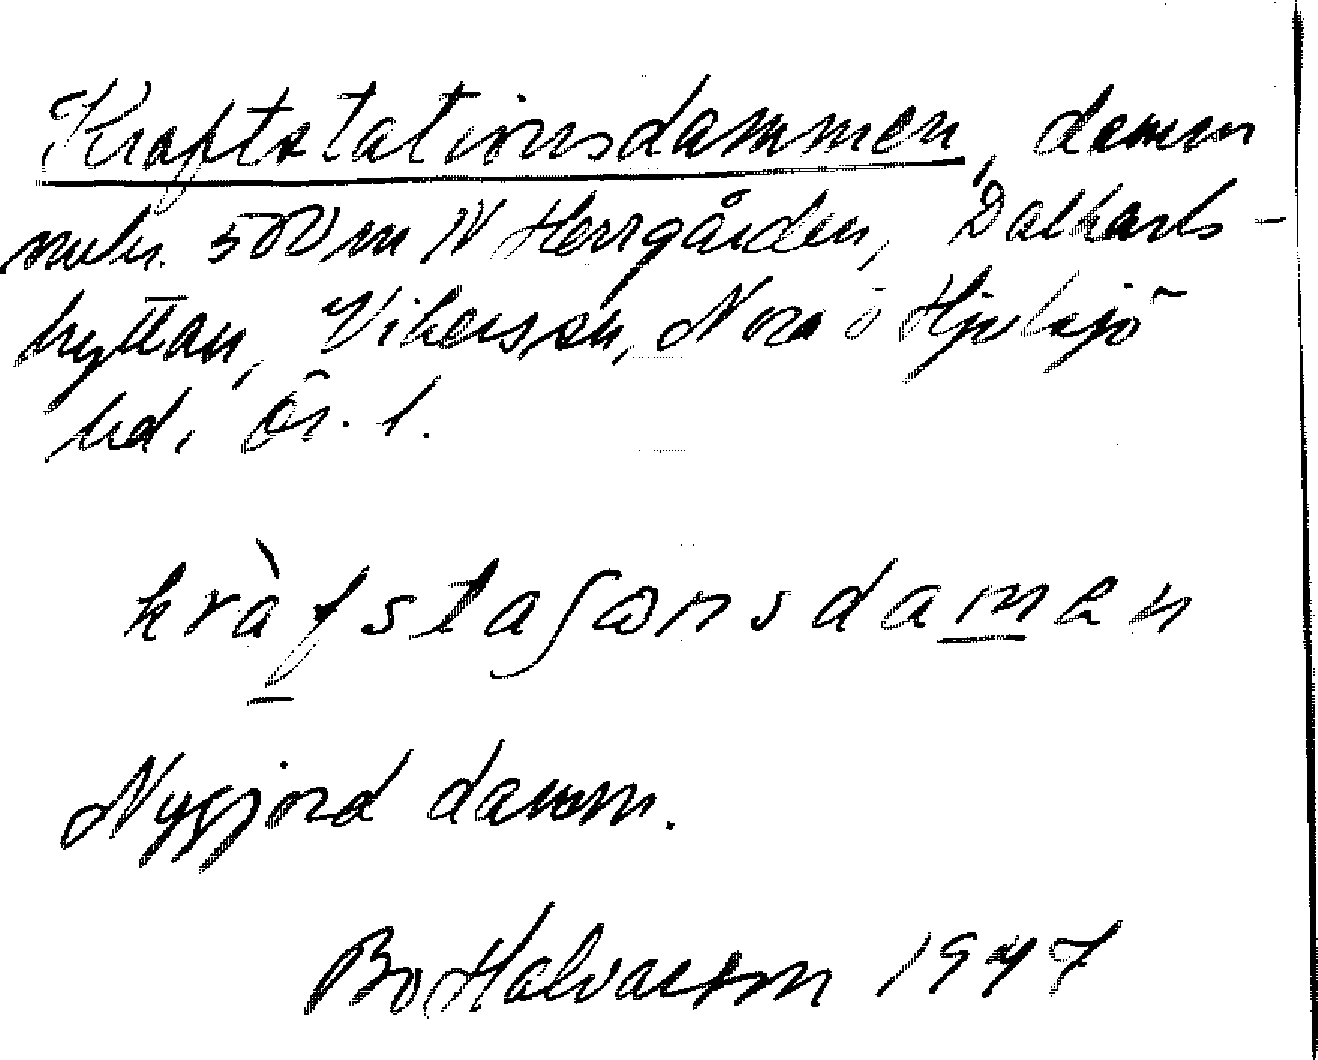 Kraftstationsdammen, damm
500 m N Herrgården, Dalkarls-
hyttan, Vikers sn, Nora o Hjulsjö
bd, Ör. l.
kràfstaʃɷnsdamen
Nygjord damm.
Bo Halvarson 1947